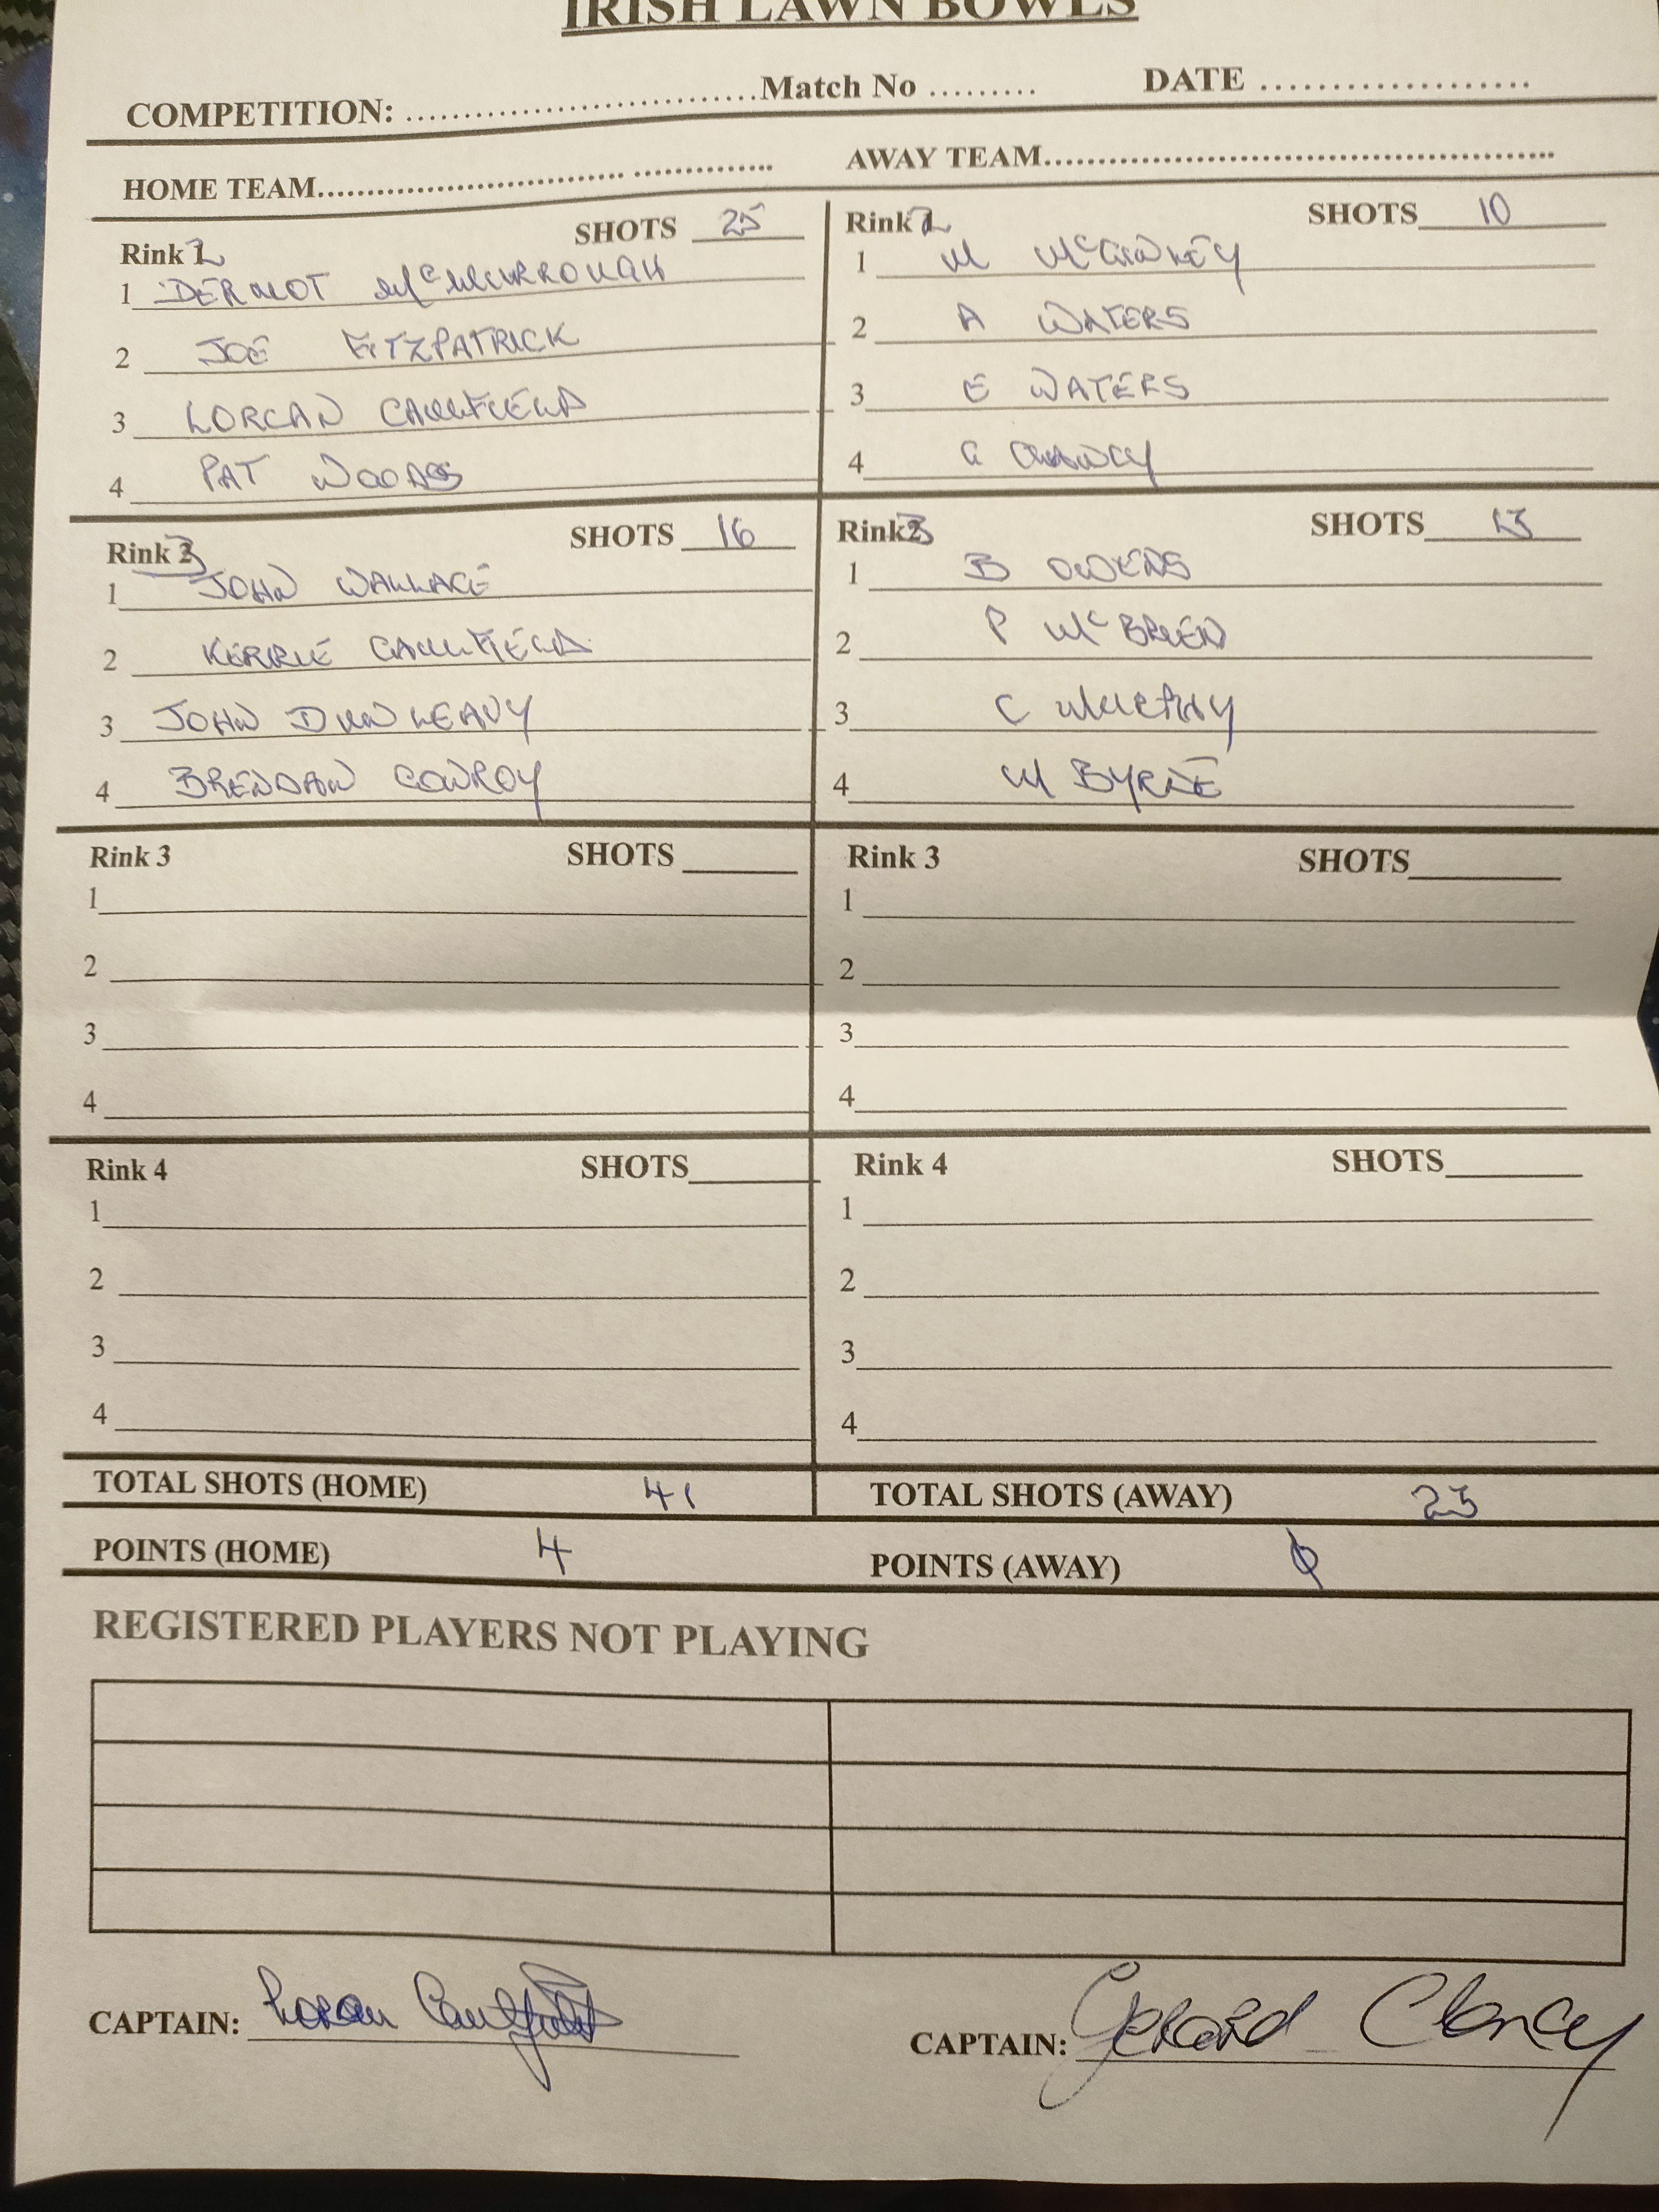 IRISH LAWN BOWLS
COMPETITION: ................................Match No ......... DATE ....................
HOME TEAM............................................... AWAY TEAM................................................
Rink 2 SHOTS 25
1 DERMOT McMURROUGH
2 JOE FITZPATRICK
3 LORCAN CAULFIELD
4 PAT WOODS
Rink 2 SHOTS 10
1 M
2 A WATERS
3 E WATERS
4 G CLANCY
Rink 3 SHOTS 16
1 JOHN WALLACE
2 KERRIE CAULFIELD
3 JOHN DUNLEAVY
4 BRENDAN CONROY
Rink 3 SHOTS 13
1 B OWENS
2 P McBRIEN
3 C MURPHY
4 M BYRNE
Rink 3 SHOTS
1
2
3
4
Rink 3 SHOTS
1
2
3
4
Rink 4 SHOTS
1
2
3
4
Rink 4 SHOTS
1
2
3
4
TOTAL SHOTS (HOME) 41 TOTAL SHOTS (AWAY) 23
POINTS (HOME) 4 POINTS (AWAY) 0
REGISTERED PLAYERS NOT PLAYING
CAPTAIN: Lorcan Caulfield
CAPTAIN: Gerard Clancy